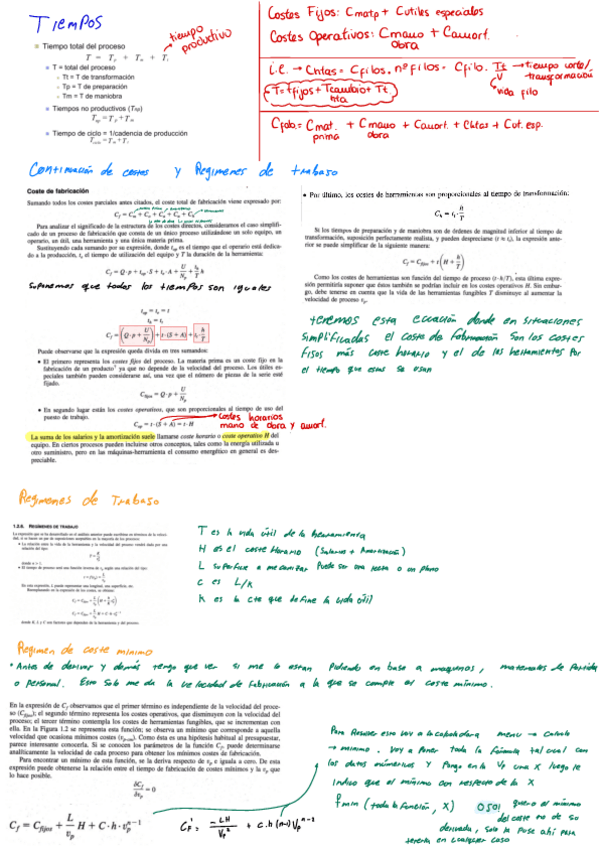 TIEMPOS
Tiempo total del proceso
T = Tp + Tm + Tt
tiempo productivo
T = total del proceso
Tt = T de transformación
Tp = T de preparación
Tm = T de maniobra
Tiempos no productivos (Tnp)
Tnp = Tp + Tm
Tiempo de ciclo = 1/cadencia de producción
Costes Fijos: Cmatp + Cutiles especiales
Costes Operativos: Cmano obra + Camort.
i.e. → Chtas = Cfilos. nº filos = Cfilo. Tt/V → tiempo corte/transformación
vida filo
T = tfijos + Tcambio hta + Tt.
Cfab = Cmat. prima + Cmano obra + Camort. + Chtas + Cut. esp.
Continuación de costes y Regimenes de trabajo
Coste de fabricación
Sumando todos los costes parciales antes citados, el coste total de fabricación viene expresado por:
Para analizar el significado de la estructura de los costes directos, consideramos el caso simplificado de un proceso de fabricación que consta de un único proceso utilizándose un solo equipo, un operario, un útil, una herramienta y una única materia prima.
Sustituyendo cada sumando por su expresión, donde top es el tiempo el operario está dedicado a la producción, te el tiempo de utilización del equipo y T la duración de la herramienta:
suponemos que todos los tiempos son iguales
Puede observarse que la expresión queda divida en tres sumandos:
• El primero representa los costes fijos del proceso. La materia prima es un coste fijo en la fabricación de un producto ya que no depende de la velocidad del proceso. Los útiles especiales también pueden considerarse así, una vez que el número de piezas de la serie esté fijado.
Cfijos = Q · p + U/Np
• En segundo lugar están los costes operativos, que son proporcionales al tiempo de uso del puesto de trabajo.
Cop = t · (S + A) = t · H
costes horarios mano de obra y amort.
La suma de los salarios y la amortización suele llamarse coste horario o coste operativo H del equipo. En ciertos procesos pueden incluirse otros conceptos, tales como la energía utilizada u otro suministro, pero en las máquinas-herramienta el consumo energético en general es despreciable.
• Por último, los costes de herramientas son proporcionales al tiempo de transformación:
Si los tiempos de preparación y de maniobra son de órdenes de magnitud inferior al tiempo de transformación, suposición perfectamente realista, y pueden despreciarse (t ≈ tt), la expresión anterior se puede simplificar de la siguiente manera:
Cf = Cfijos + t (H + h/T)
Como los costes de herramientas son función del tiempo de proceso (t · h/T), esta última expresión permitiría suponer que éstos también se podrían incluir en los costes operativos H. Sin embargo, debe tenerse en cuenta que la vida de las herramientas fungibles T disminuye al aumentar la velocidad de proceso vp.
tenemos esta ecuación donde en situaciones
simplificadas el coste de fabricación son los costes
fijos más coste horario y el de las herramientas por
el tiempo que estas se usan
Regimenes de Trabajo
1.2.6. REGÍMENES DE TRABAJO
T es la vida útil de la herramienta
H es el coste Horario (Salarios + Amortización)
L superficie a mecanizar Puede ser una recta o un plano
c es L/K
K es la cte que define la vida útil
Regimen de coste minimo
• Antes de derivar y demás tengo que ver si me lo estan Pidiendo en base a maquinas, materiales de Partida
o personal. Esto solo me da la velocidad de Fabricación a la que se cumple el coste mínimo.
En la expresión de Cf observamos que el primer término es independiente de la velocidad del proceso (Cfijos); el segundo término representa los costes operativos, que disminuyen con la velocidad del proceso; el tercer término contempla los costes de herramientas fungibles, que se incrementan con ella. En la Figura 1.2 se representa esta función; se observa un mínimo que corresponde a aquella velocidad que ocasiona mínimos costes (vp,co). Como ésta es una hipótesis habitual al presupuestar, parece interesante conocerla. Si se conocen los parámetros de la función Cf, puede determinarse analíticamente la velocidad de cada proceso para obtener los mínimos costes de fabricación.
Para encontrar un mínimo de esta función, se la deriva respecto de vp e iguala a cero. De esta expresión puede obtenerse la relación entre el tiempo de fabricación de costes mínimos y la vp que lo hace posible.
∂Cf/∂vp = 0
Cf = Cfijos + L/vp H + C · h · vp^n−1
Cf' = −LH/Vp² + c.h(n−1)Vp^n−2
Para Resolver esto voy a la calculadora menu → Calculo
→ minimo. Voy a Poner toda la fórmula tal cual con
los datos numéricos y Pongo en la Vp una X luego le
indico que el mínimo con respecto de la X
fmin (toda la función, X) OJO! quiero el mínimo
del coste no de su
derivada, solo la puse ahí para
tenerla en cualquier caso